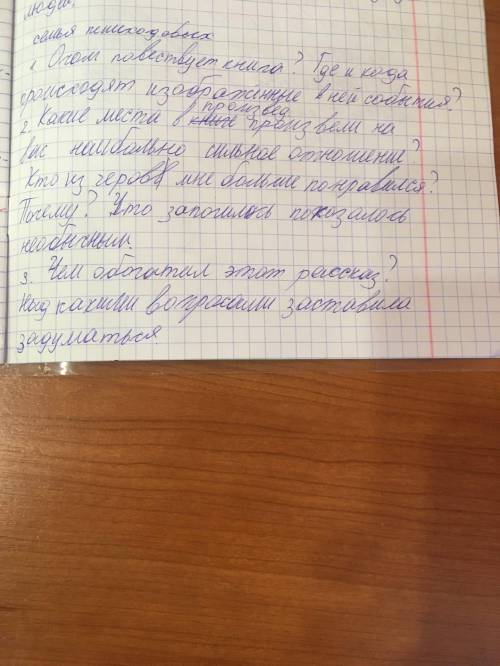 люди.
семья пешеходовых
1. О чом повествует книга? Где и кода
происходят изображенные в ней события?
2. Какие места в произвед. произвели на
вас наибольно сильное отношение?
Кто из геров мне больше понравился?
Почему? Что запомилось показалось
необычным.
3. Чем обогатил этот рассказ?
Над какими вопросами заставила
задуматься.